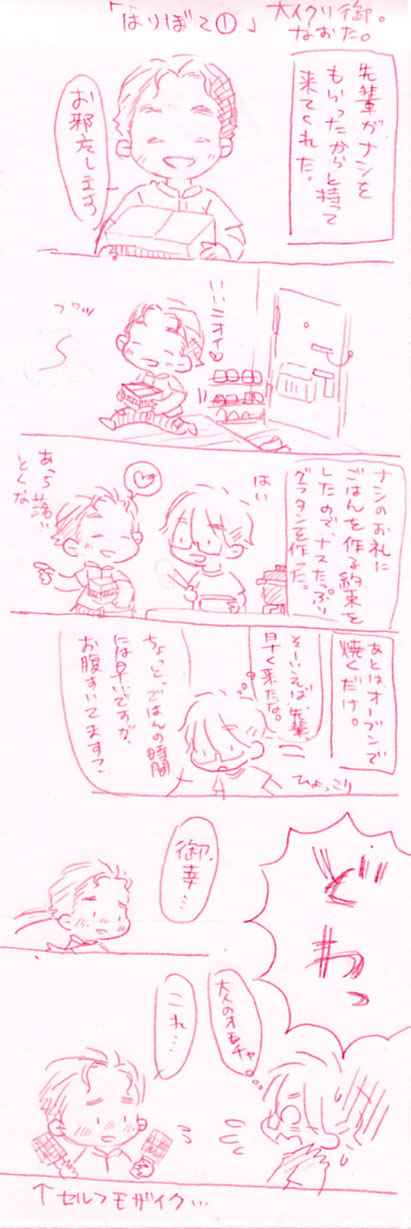 「はりぼて①」
大イクリ御。
なおた。
先輩がナシを
もらったからと持って
来てくれた。
お邪广します
いいニオイ♡
フワッ
ナシのお礼に
ごはんを作る約束を
したので、ナスたっぷり
グラタンを作った。
はい
あっち落いとくな
あとは、オーブンで
焼くだけ。
そーいえば、先輩
早く来たな。
ひょっこり
ちょっと、ごはんの時間
には早いですが、
お腹すいてます？
御幸…
どわっ
大人のオモチャ
これ…
↑セルフモザイク…